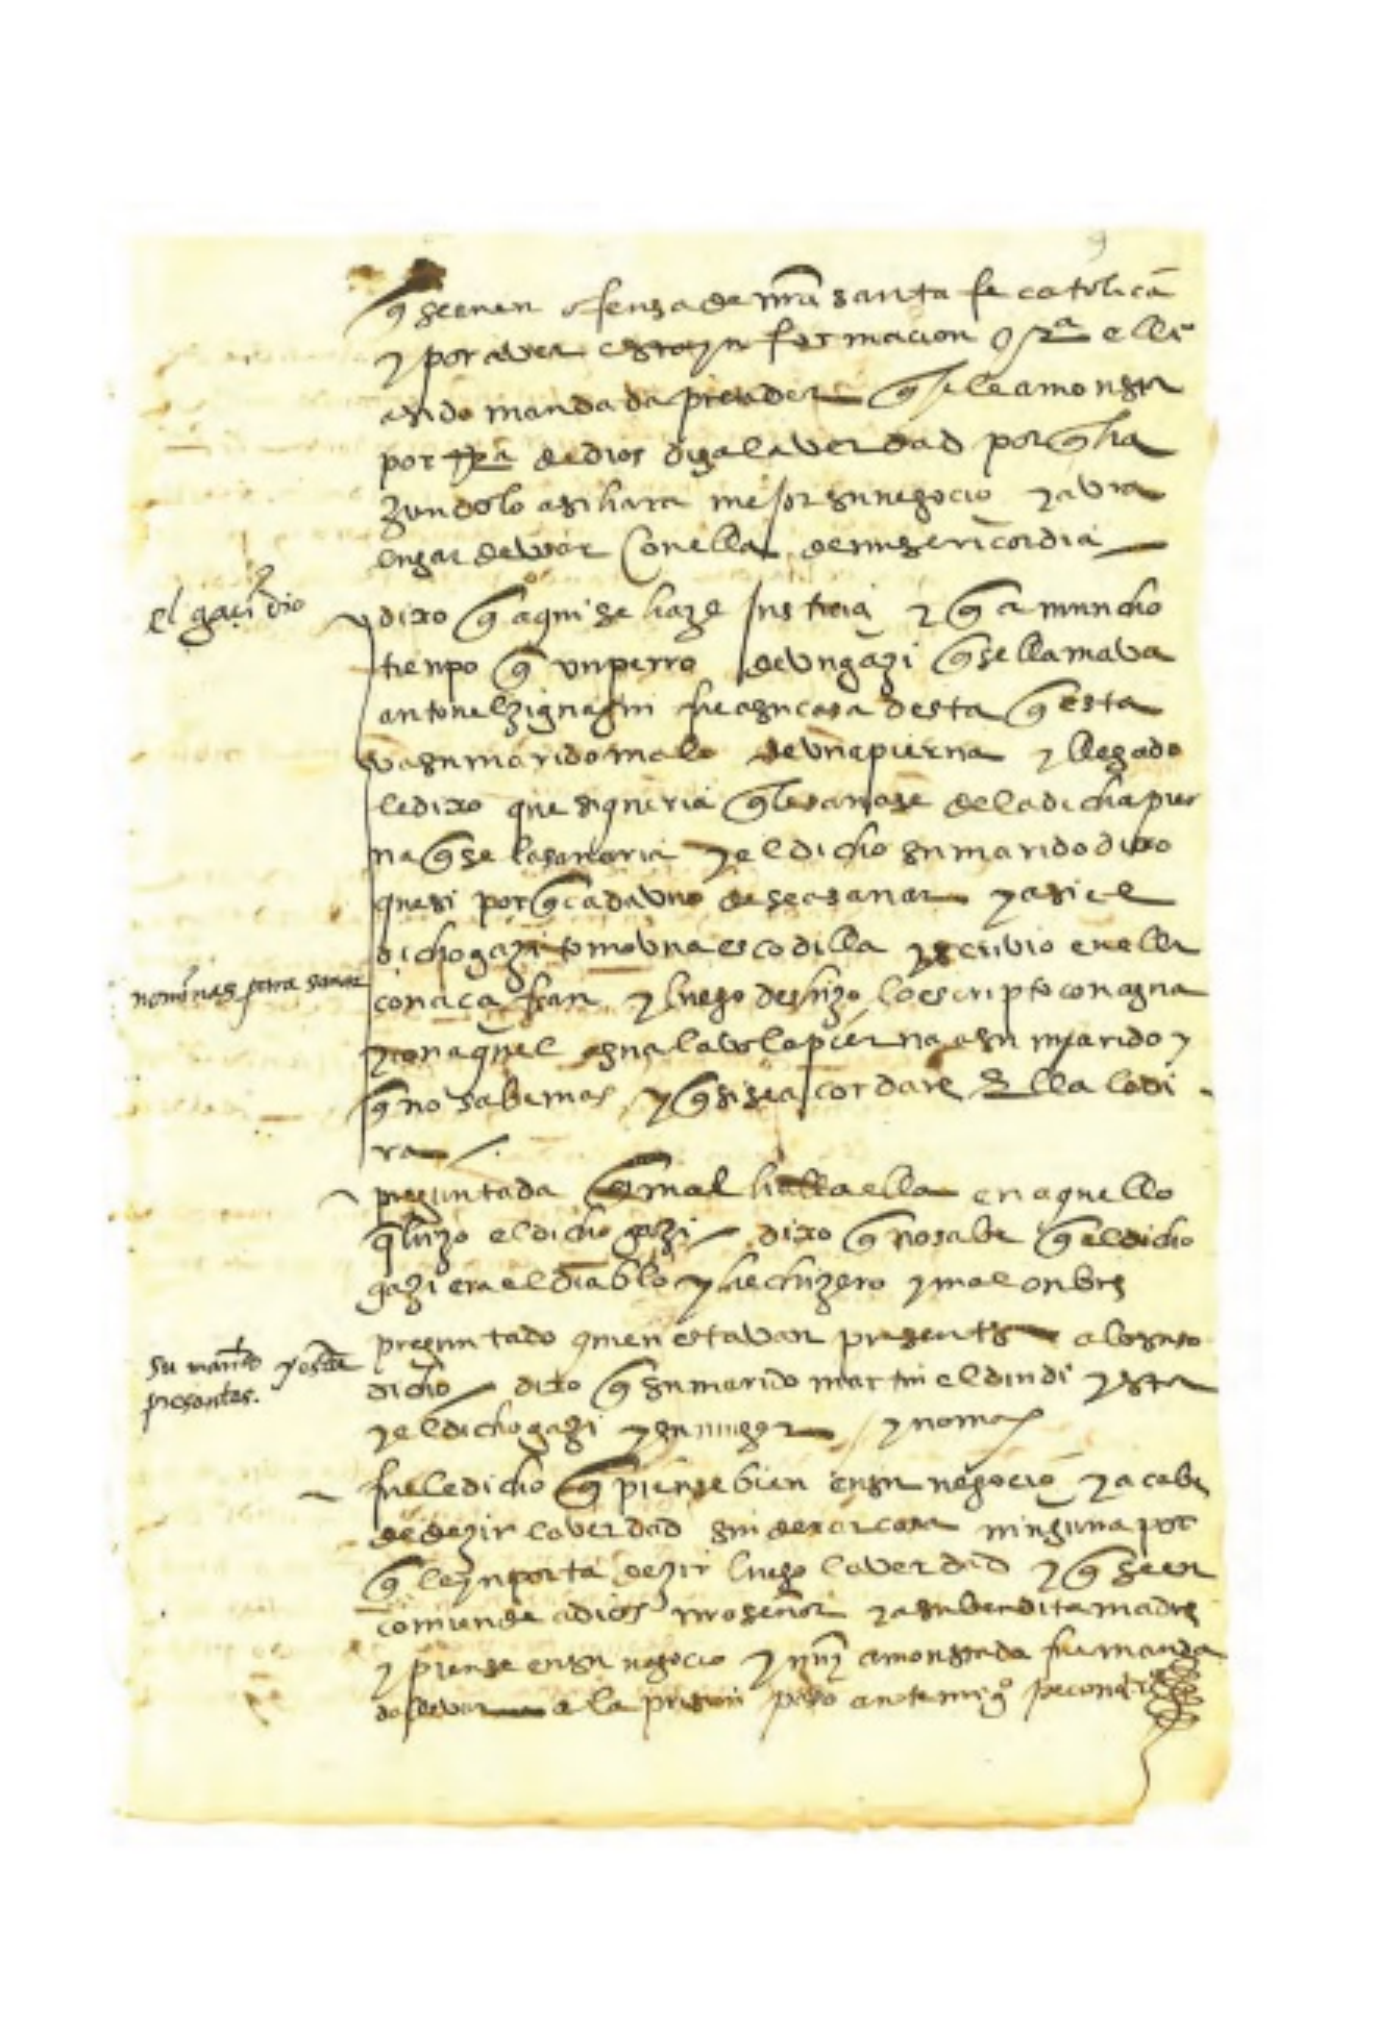 q̃ se en en ofensa de nr̃a santa fe catolica
y por aver esta ynformacion ella
a sido mandada prender q̃ se le amonesta
por de dios diga la verdad porq̃ ha
ziendolo asi hara mejor su negocio y avra
lugar de usar con ella de misericordia
el gaçi dio
dixo q̃ aqui se haze justicia y q̃ a muncho
tienpo q̃ un perro de un gazi q̃ se llamava
anton fue a su casa desta q̃ esta
va su marido malo de una pierna y llegado
le dixo que si queria q̃ le sanase de la dicha pier
na q̃ se la sanaria y el dicho su marido dixo
que si porq̃ cada uno desea sanar y asi el
dicho gazi tomo una escodilla y escrivio en ella
nominas para sanar
con açafran y luego deshizo lo escripto con agua
y con aquel agua lavo la pierna a su marido y
q̃ no sabe mas y q̃ si se acordare ella lo di
ra
preguntada q̃ mal halla ella en aquello
q̃ hizo el dicho gazi dixo q̃ no sabe q̃ el dicho
gazi era el diablo y hechizero y mal onbre
preguntado quien estavan presentes a lo suso
su marido y esta
presentes.
dicho dixo q̃ su marido martin el dindi y esta
y el dicho gazi y su muger y no mas
fuele dicho q̃ piense bien en su negocio y acabe
de dezir la verdad sin dexar cosa ninguna por
q̃ le ynporta dezir luego la verdad y q̃ se en
comiende a dios nro señor y a su bendita madre
y piense en su negocio y amonestada fue manda
do llevar a la prision paso ante mi